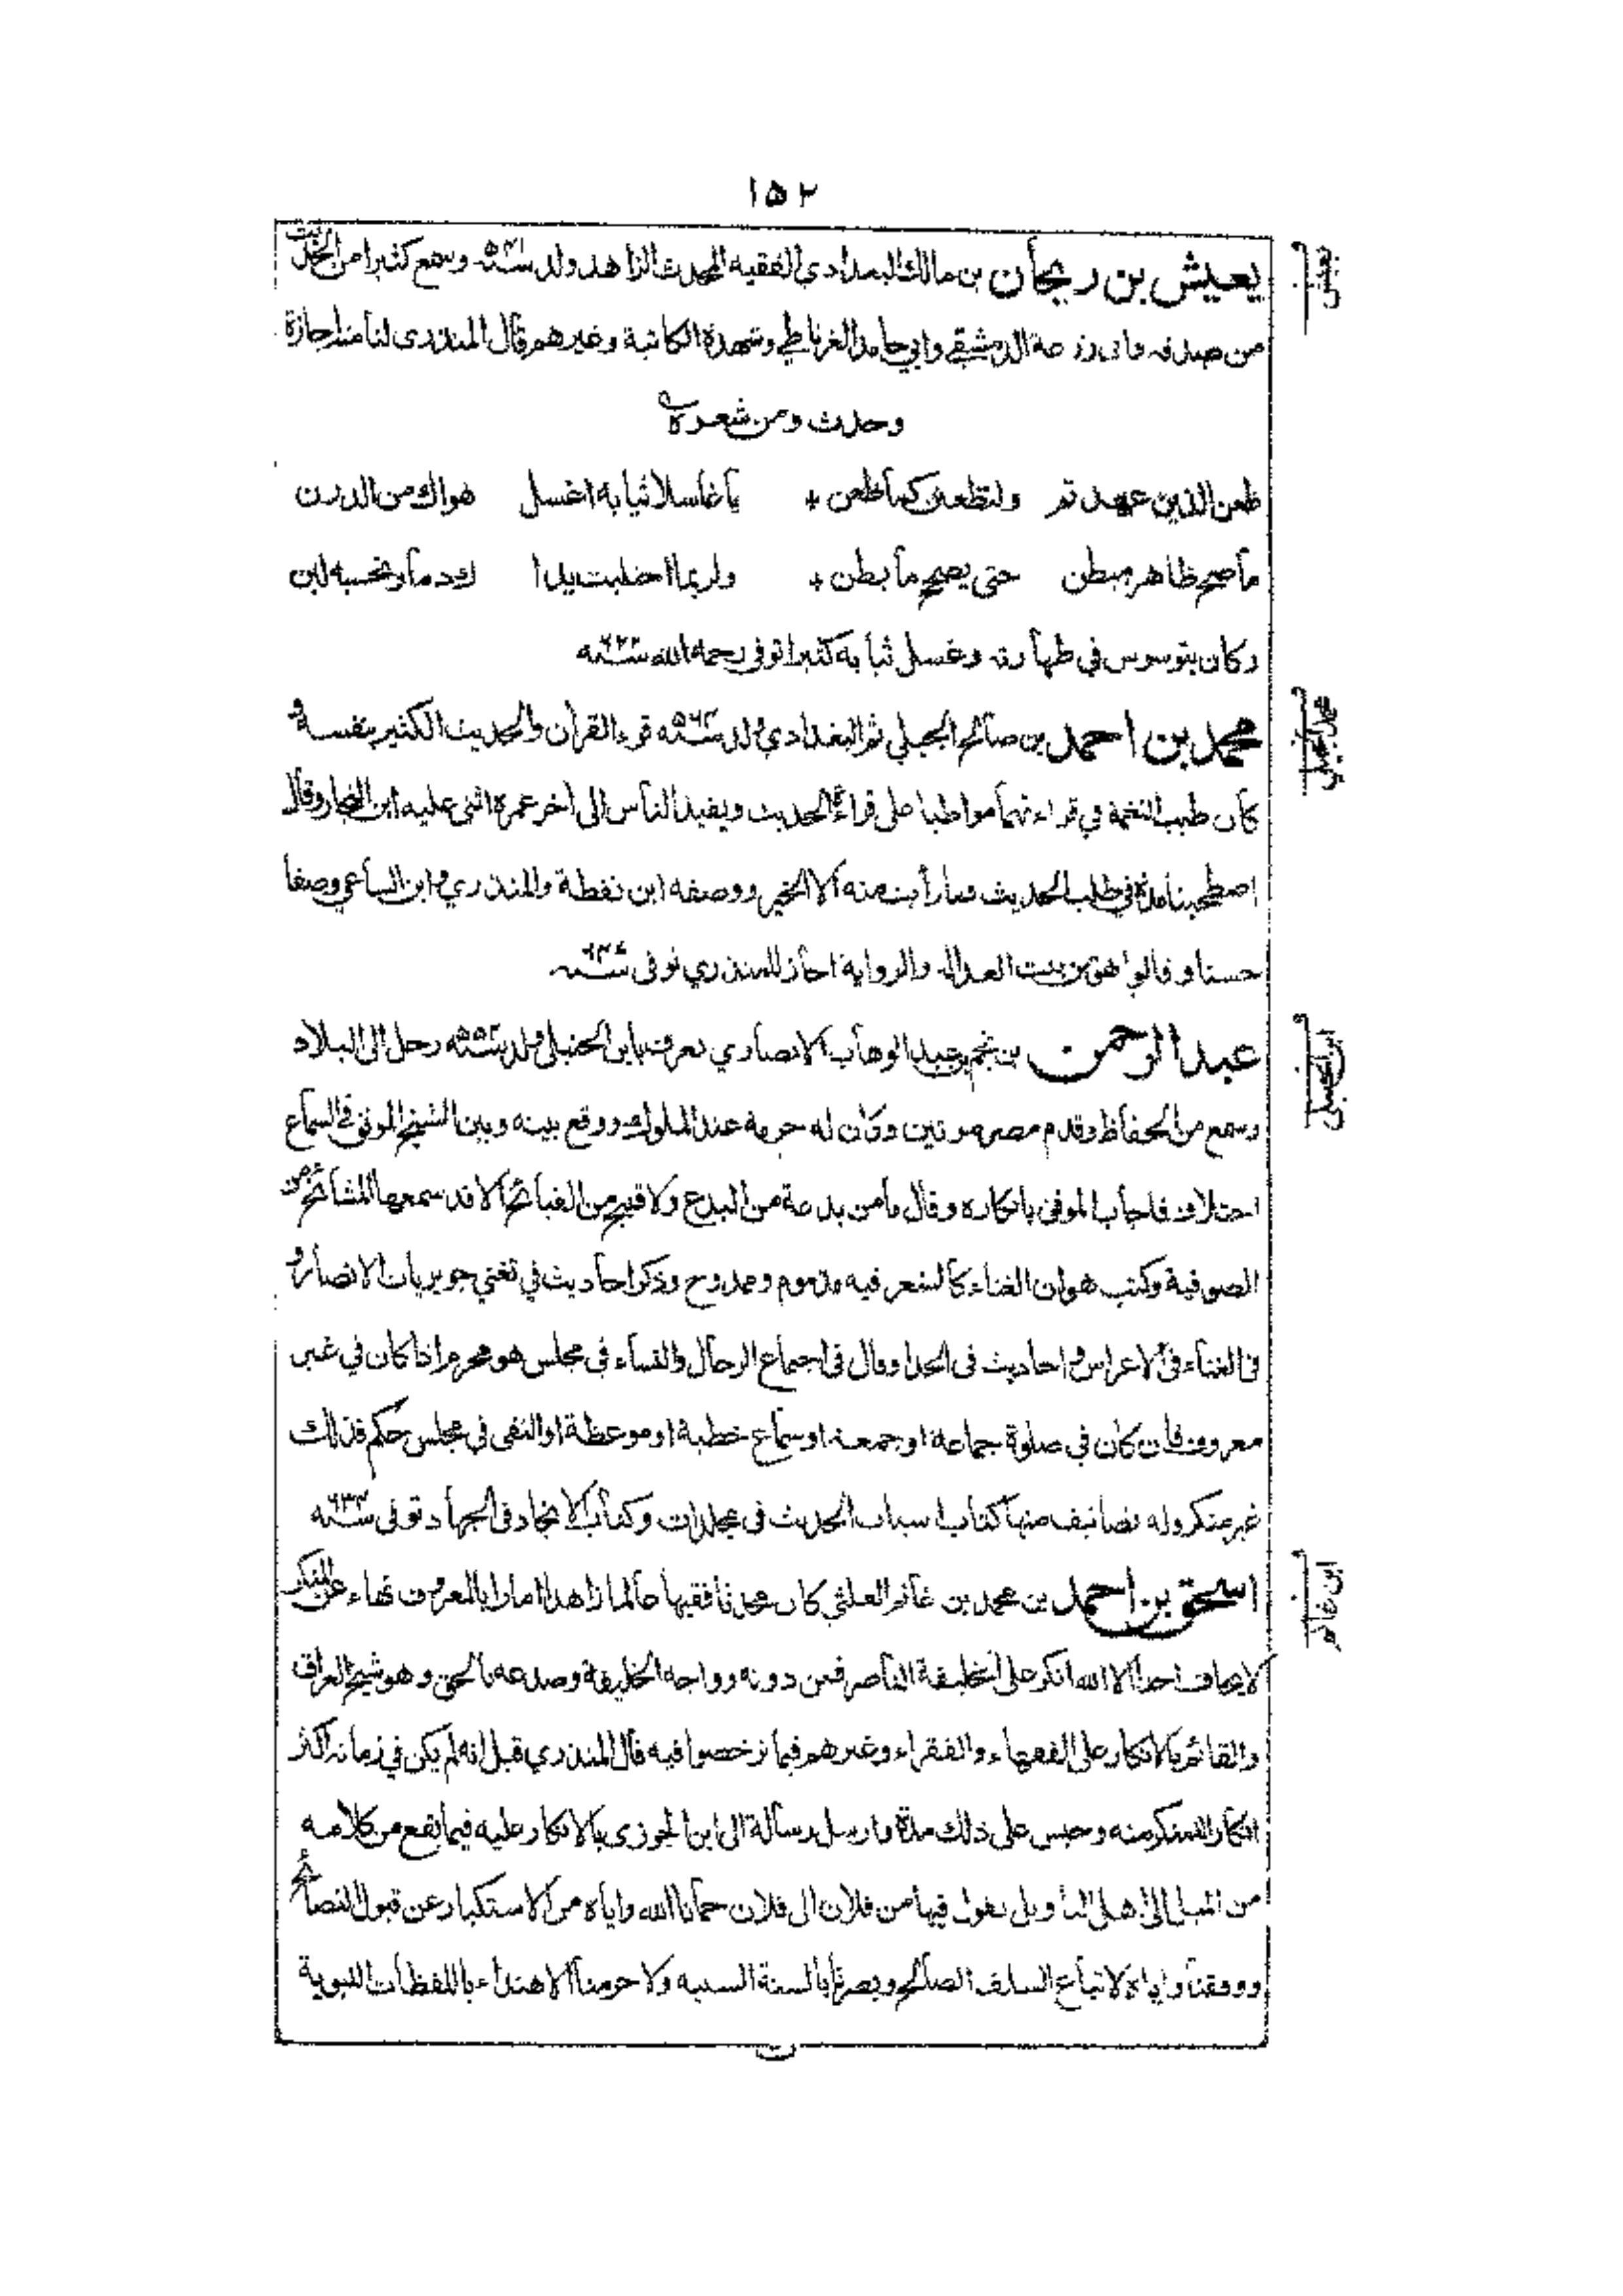 ١٥٢
يعيش بن ريحان بن مالك البغدادي الفقيه المحدث الزاهد ولد سنه ٥٤١ وسمع كثيرا من الحديث
من صدقه وابى زرعة الدمشقي وابي حامد الغرناطي وشهدة الكاتبة وغيرهم قال المنذرى لنا منه اجازة
وحدث ومن شعره
ظعن الذين عهدتم ولتظعنن كما ظعن * يا غاسلا ثيابه اغسل هواك من الدرن
ما صح ظاهر مبطن حتى يصح ما بطن * ولربما احتلبت يدا ك دما وتحسبه لبن
وكان يتوسوس في طهارته وغسل ثيابه كثيرا توفى رحمه الله سنه ٦٢٢
محمد بن احمد بن صالح الجيلي ثم البغدادي ولد سنه ٥٦٤ قرء القرآن والحديث الكثير بنفسه و
كان طيب النغمة في قراءتهما مواظبا على قراءة الحديث ويفيد الناس الى آخر عمره اثنى عليه ابن النجار وقال
اصطحبنا مدة في طلب الحديث وما رأيت منه الا الخير ووصفه ابن نقطة والمنذري وابن الساعي وصفا
حسنا وقالوا هو من بيت العدالة والرواية اجاز للمنذري توفى سنه
عبد الرحمن بن نجم بن عبد الوهاب الانصاري يعرف بابن الحنبلي ولد سنه ٥٥٤ رحل الى البلاد
وسمع من الحفاظ وقدم مصر مرتين وكان له حرمة عند الملوك ووقع بينه وبين الشيخ الموفق في السماع
اختلاف فاجاب الموفق بانكاره وقال ما من بدعة من البدع ولا قبيح من القبائح الا قد سمعها المشائخ من
الصوفية وكتب هو ان الغناء كالشعر فيه مذموم وممدوح وذكر احاديث في تغني جويريات الانصار و
في الغناء في الاعراس واحاديث فى الحدا وقال فى اجتماع الرجال والنساء فى مجلس هو محرم اذا كان في غير
معروف فان كان في صلوة جماعة او جمعة او سماع خطبة او موعظة او التقى في مجلس حكم فذلك
غير منكر وله تصانيف منها كتاب اسباب الحديث فى مجلدات وكتاب الانجاد فى الجهاد توفى سنه ٦٣٤
اسحق بن احمد بن محمد بن غانم العلثي كان محدثا فقيها عالما زاهدا امارا بالمعروف نهاء عن المنكر
لا يخاف احدا الا الله انكر على الخليفة الناصر فمن دونه وواجه الخليفة وصدعه بالحق وهو شيخ العراق
والقائم بالانكار على الفقهاء والفقراء وغيرهم فيما ترخصوا فيه قال المنذري قيل انه لم يكن في زمانه اكثر
انكارا للمنكر منه وحبس على ذلك مدة وارسل رسالة الى ابن الجوزى بالانكار عليه فيما يقع من كلامه
من الميل الى اهل التأويل يقول فيها من فلان الى فلان حمانا الله واياه من الاستكبار عن قبول النصائح
ووفقنا واياه لاتباع السلف الصالح وبصرنا بالسنة السنيه ولا حرمنا الاهتداء باللفظات النبوية
يعيش
محمد الجيلي
ابن الحنبلي
ابن غانم